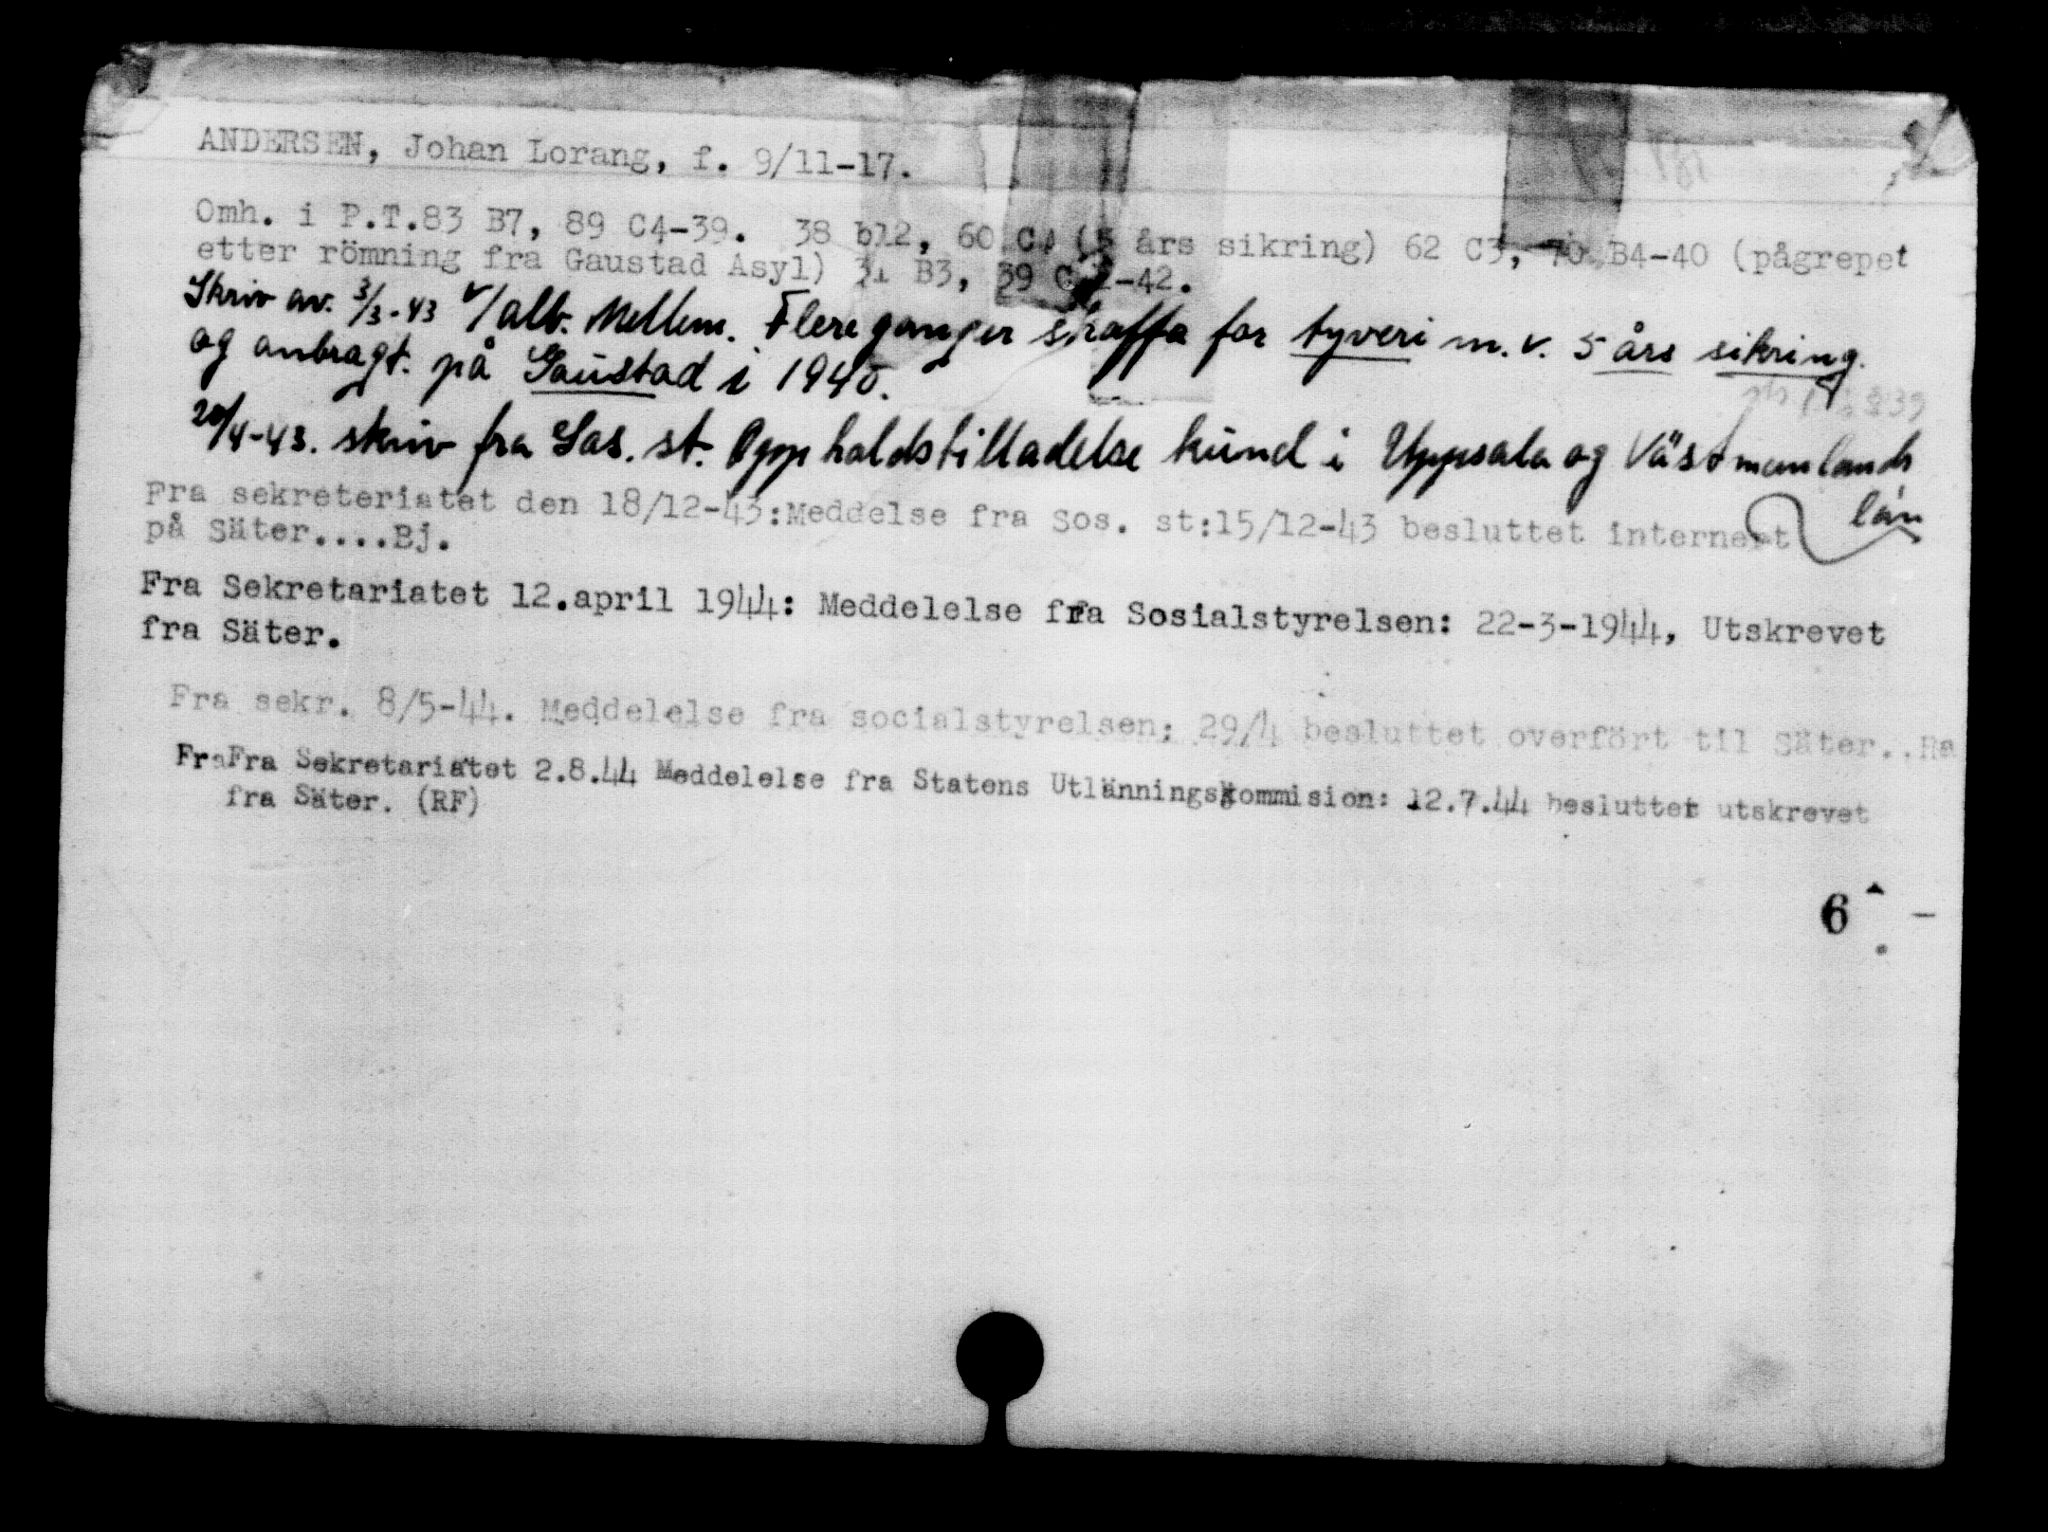 ANDERSEN, Johan Lorang, f. 9/11-17.
Omh. i P.T.83 B7, 89 C4-39. 38 b12, 60 C4 (5 års sikring) 62 C3, 70 B4-40 (pågrepet
etter römning fra Gaustad Asyl) 31 B3, 39 -42.
Skriv av. 3/3-43 v/ alb. Mellem. Flere ganger straffa for tyveri m.v. 5 års sikring.
og anbragt. på Gaustad i 1940.
20/4-43. skriv fra Sos. st. Oppholdstilladelse kund i Uppsala og Västmanlands
län
Fra sekreteriatet den 18/12-43:Meddelse fra Sos. st:15/12-43 besluttet internert
på Säter....Bj.
Fra Sekretariatet 12.april 1944: Meddelelse fra Sosialstyrelsen: 22-3-1944, Utskrevet
fra Säter.
Fra sekr. 8/5-44. Meddelelse fra socialstyrelsen: 29/4 besluttet overfört til Säter..Ra
FraFra Sekretariatet 2.8.44 Meddelelse fra Statens Utlänningskommision: 12.7.44 besluttet utskrevet
fra Säter. (RF)
6